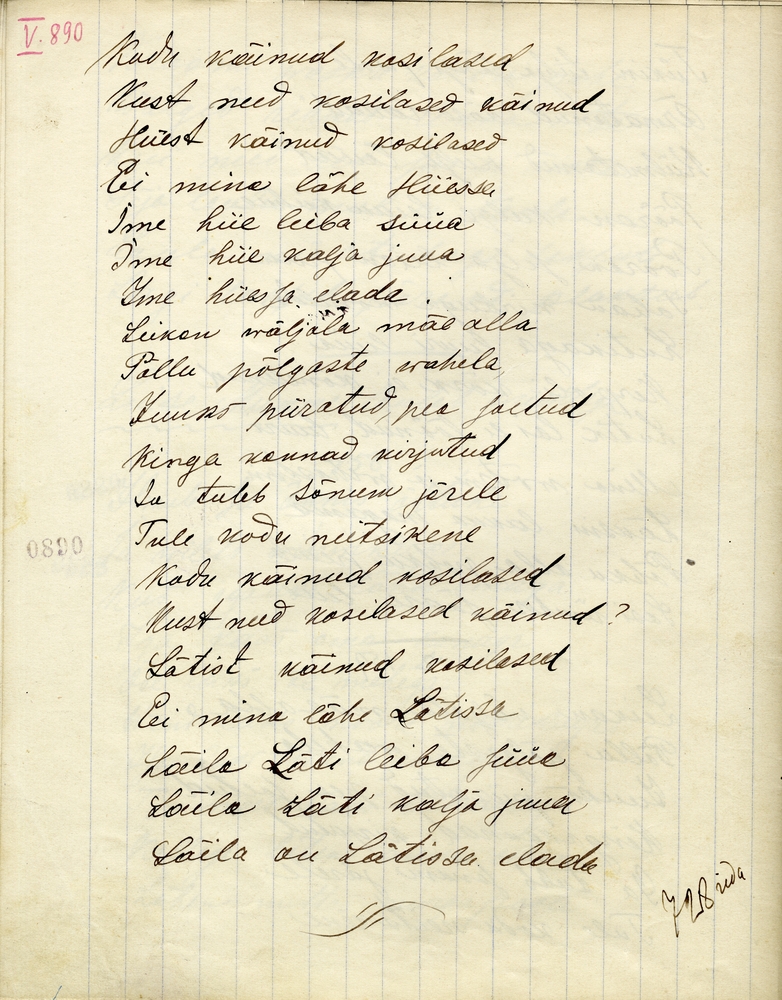 V. 890
Kodu käinud kosilased
Kust need kosilased käinud
Hiiest käinud kosilased
Ei mina lähe Hiiessa
Ime hiie leiba süüa
Ime hiie kalja juua
Ime hiiessa elada.
Leikan wäljala mäe alla
Põllu põlgaste wahela
Juuks piiratud, pea soetud
Kinga konnad kirjutud
Ju tuleb sõnum järele
Tule kodu neitsikene
Kodu käinud kosilased
Kust need kosilased käinud?
Lätist käinud kosilased
Ei mina lähe Lätissa
Läila Läti leiba süüa
Läila Läti kalja juua
Läila on Lätissa elada
728 rida
0890